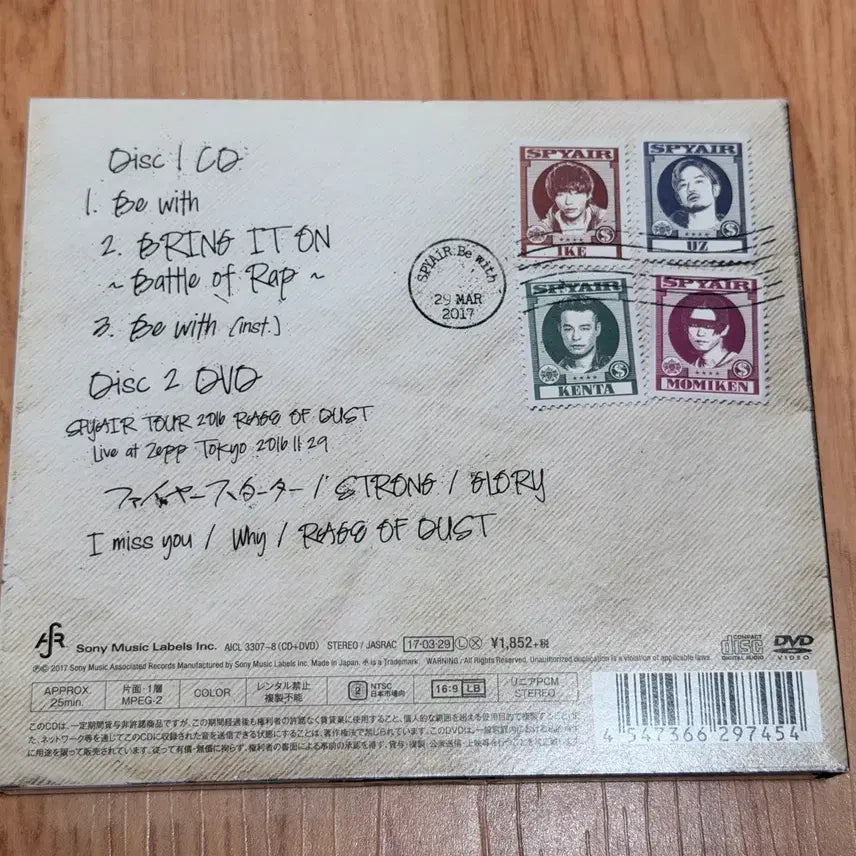 Disc 1 CD
1. Be with
2. BRING IT ON
~ Battle of Rap ~
3. Be with [inst.]
Disc 2 DVD
SPYAIR TOUR 2016 RAGE OF DUST
Live at Zepp Tokyo 2016 11 29
ファイヤースターター / STRONG / GLORY
I miss you / Why / RAGE OF DUST
SPYAIR Be with
29 MAR
2017
SPYAIR
IKE
SPYAIR
UZ
SPYAIR
KENTA
SPYAIR
MOMIKEN
Sony Music Labels Inc. AICL 3307~8 (CD+DVD) STEREO / JASRAC 17·03·29 Ⓛ Ⓧ ¥1,852+税
COMPACT disc DIGITAL AUDIO
DVD VIDEO
ⓅⒸ 2017 Sony Music Associated Records Manufactured by Sony Music Labels Inc. Made in Japan. is a Trademark. WARNING / All Rights Reserved. Unauthorized duplication is a violation of applicable laws.
APPROX 25min.
片面・1層 MPEG-2
COLOR
レンタル禁止 複製不能
2 NTSC 日本市場向
16:9 LB
リニアPCM STEREO
このCDは、一定期間貸与非許諾商品ですが、この期間経過後も権利者の許諾なく賃貸業に使用すること、個人的な範囲を超える使用目的で複製すること、
た、ネットワーク等を通じてこのCDに収録された音を送信できる状態にすることは、著作権法で禁じられています。このDVDは、一般家庭内における
に用途を限って販売されています。従って有償・無償に拘らず、権利者の書面による事前の承認を得ず、貸与・複製・公衆送信・上映等
4 547366 297454